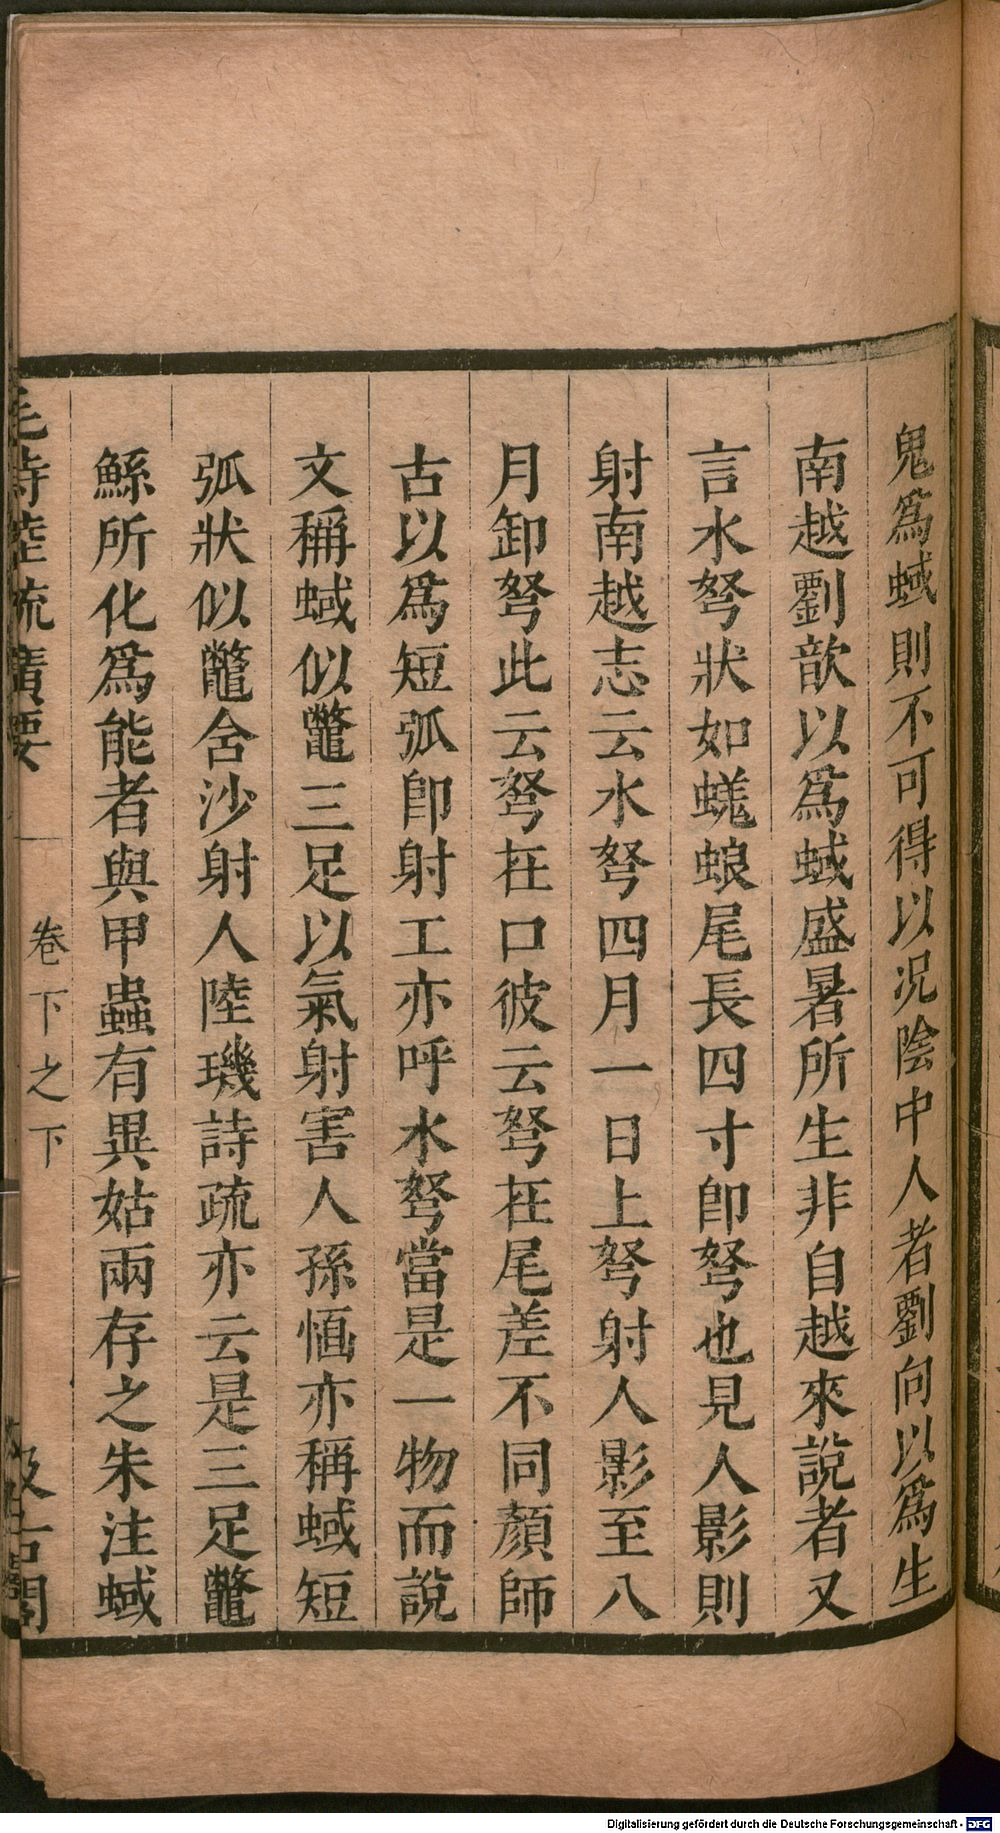 鬼爲蜮則不可得以况陰中人者劉向以爲生
南越劉歆以爲蜮盛暑所生非自越來說者又
言水弩狀如蜣蜋尾長四寸卽弩也見人影則
射南越志云水弩四月一日上弩射人影至八
月卸弩此云弩在口彼云弩在尾差不同顏師
古以爲短弧卽射工亦呼水弩當是一物而說
文稱蜮似鼈三足以氣射害人孫愐亦稱蜮短
弧狀似鼈含沙射人陸璣詩疏亦云是三足鼈
鯀所化爲能者與甲蟲有異姑兩存之朱注蜮
毛詩陸疏廣要
卷下之下
汲古閣
Digitalisierung gefördert durch die Deutsche Forschungsgemeinschaft - DFG